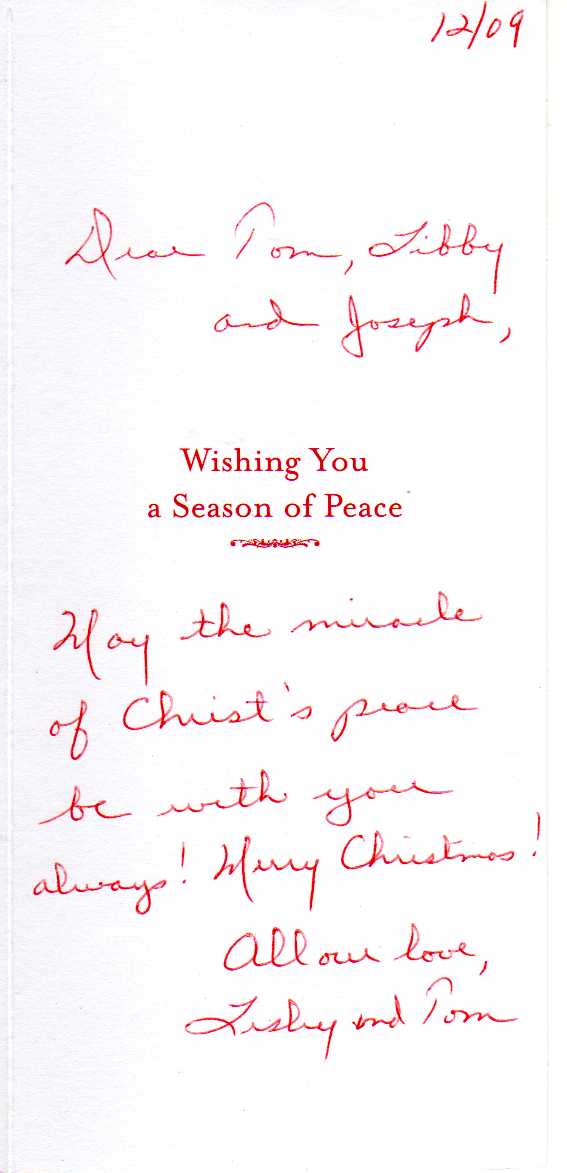 12/09
Dear Tom, Libby
and Joseph,
Wishing You
a Season of Peace
May the miracle
of Christ's peace
be with you
always! Merry Christmas!
All our love,
Lesley and Tom